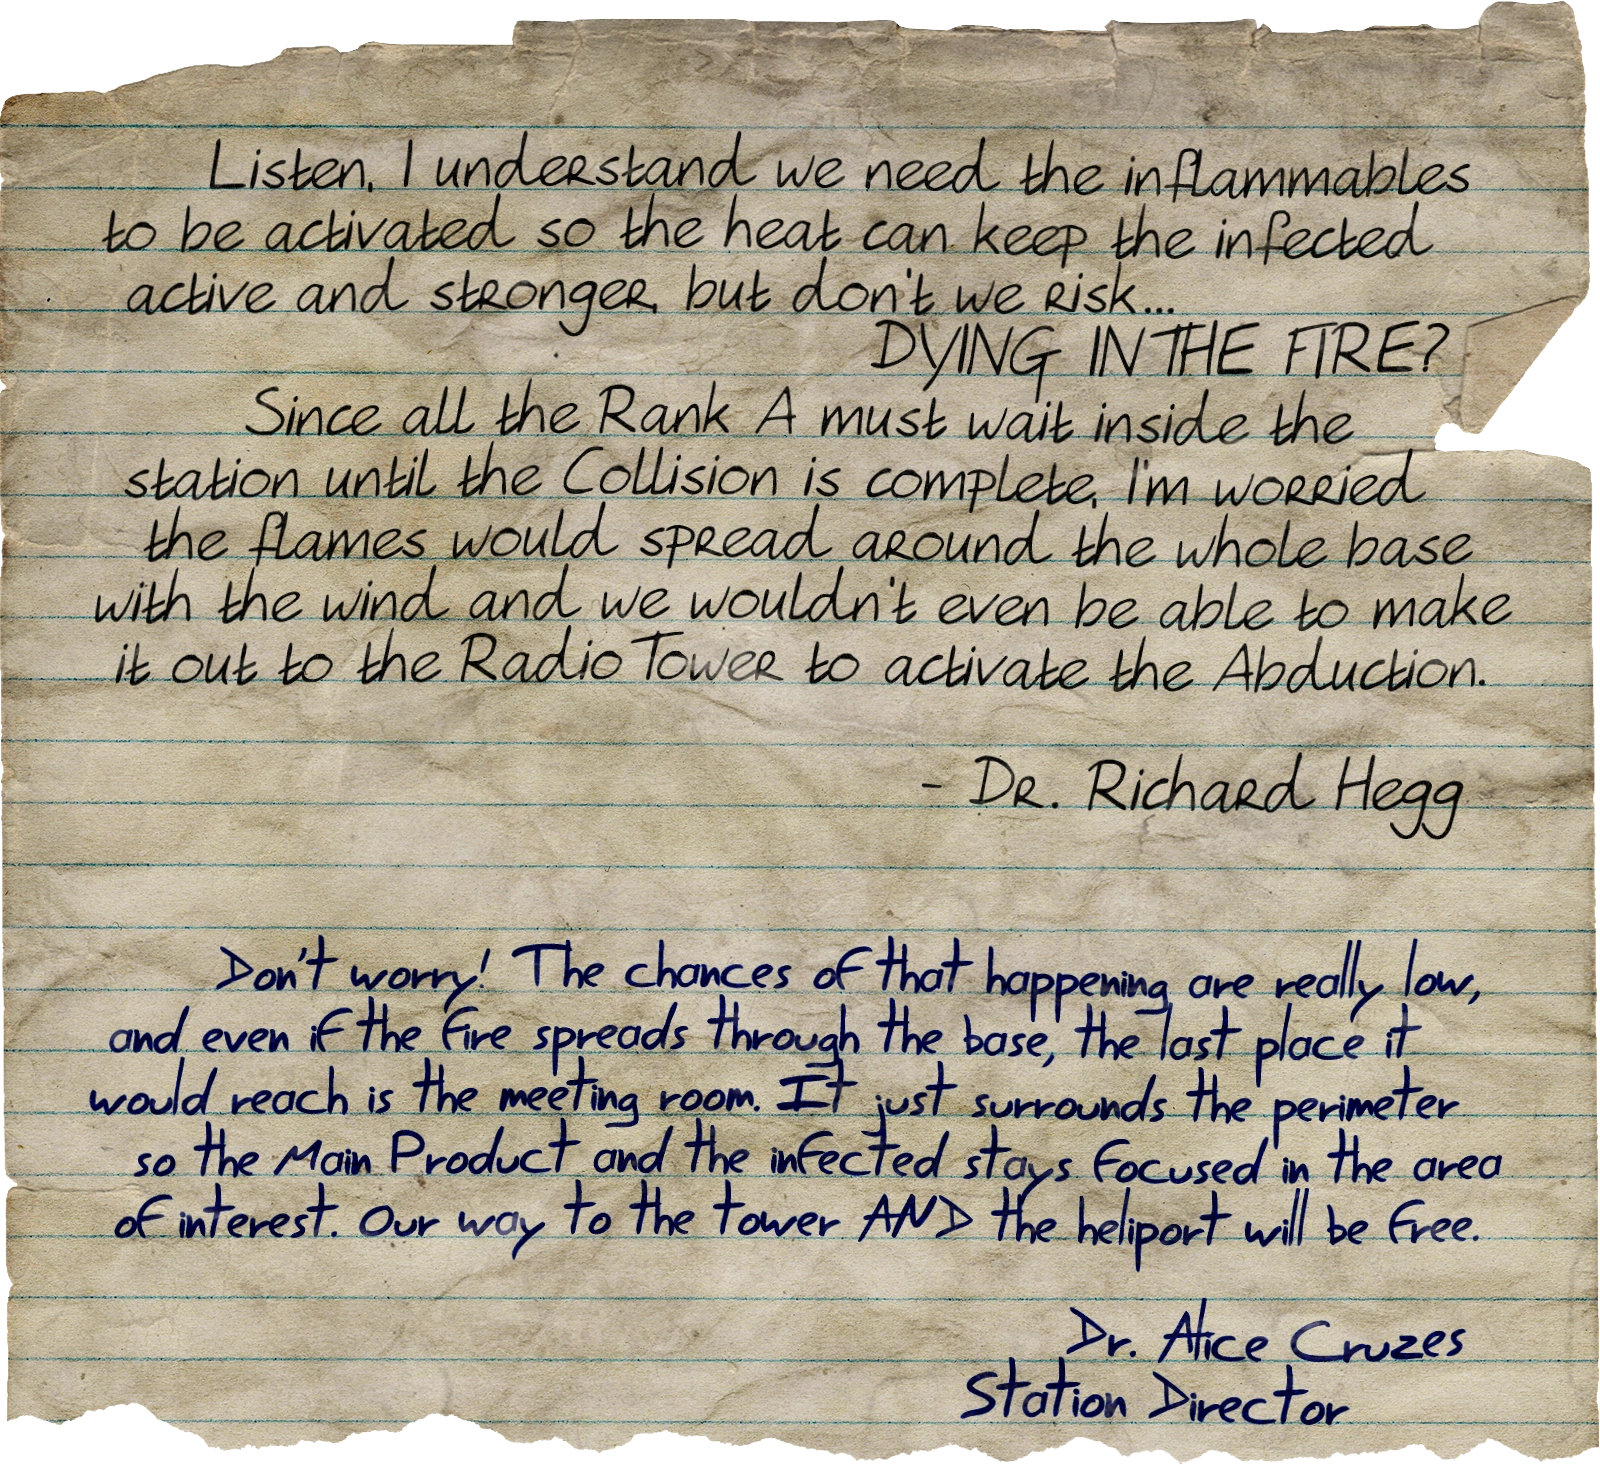 Listen, I understand we need the inflammables
to be activated so the heat can keep the infected
active and stronger, but don't we risk...
DYING IN THE FIRE?
Since all the Rank A must wait inside the
station until the Collision is complete, I'm worried
the flames would spread around the whole base
with the wind and we wouldn't even be able to make
it out to the Radio Tower to activate the Abduction.
- Dr. Richard Hegg
Don't worry! The chances of that happening are really low,
and even if the fire spreads through the base, the last place it
would reach is the meeting room. It just surrounds the perimeter
so the Main Product and the infected stays focused in the area
of interest. Our way to the tower AND the heliport will be free.
Dr. Alice Cruzes
Station Director